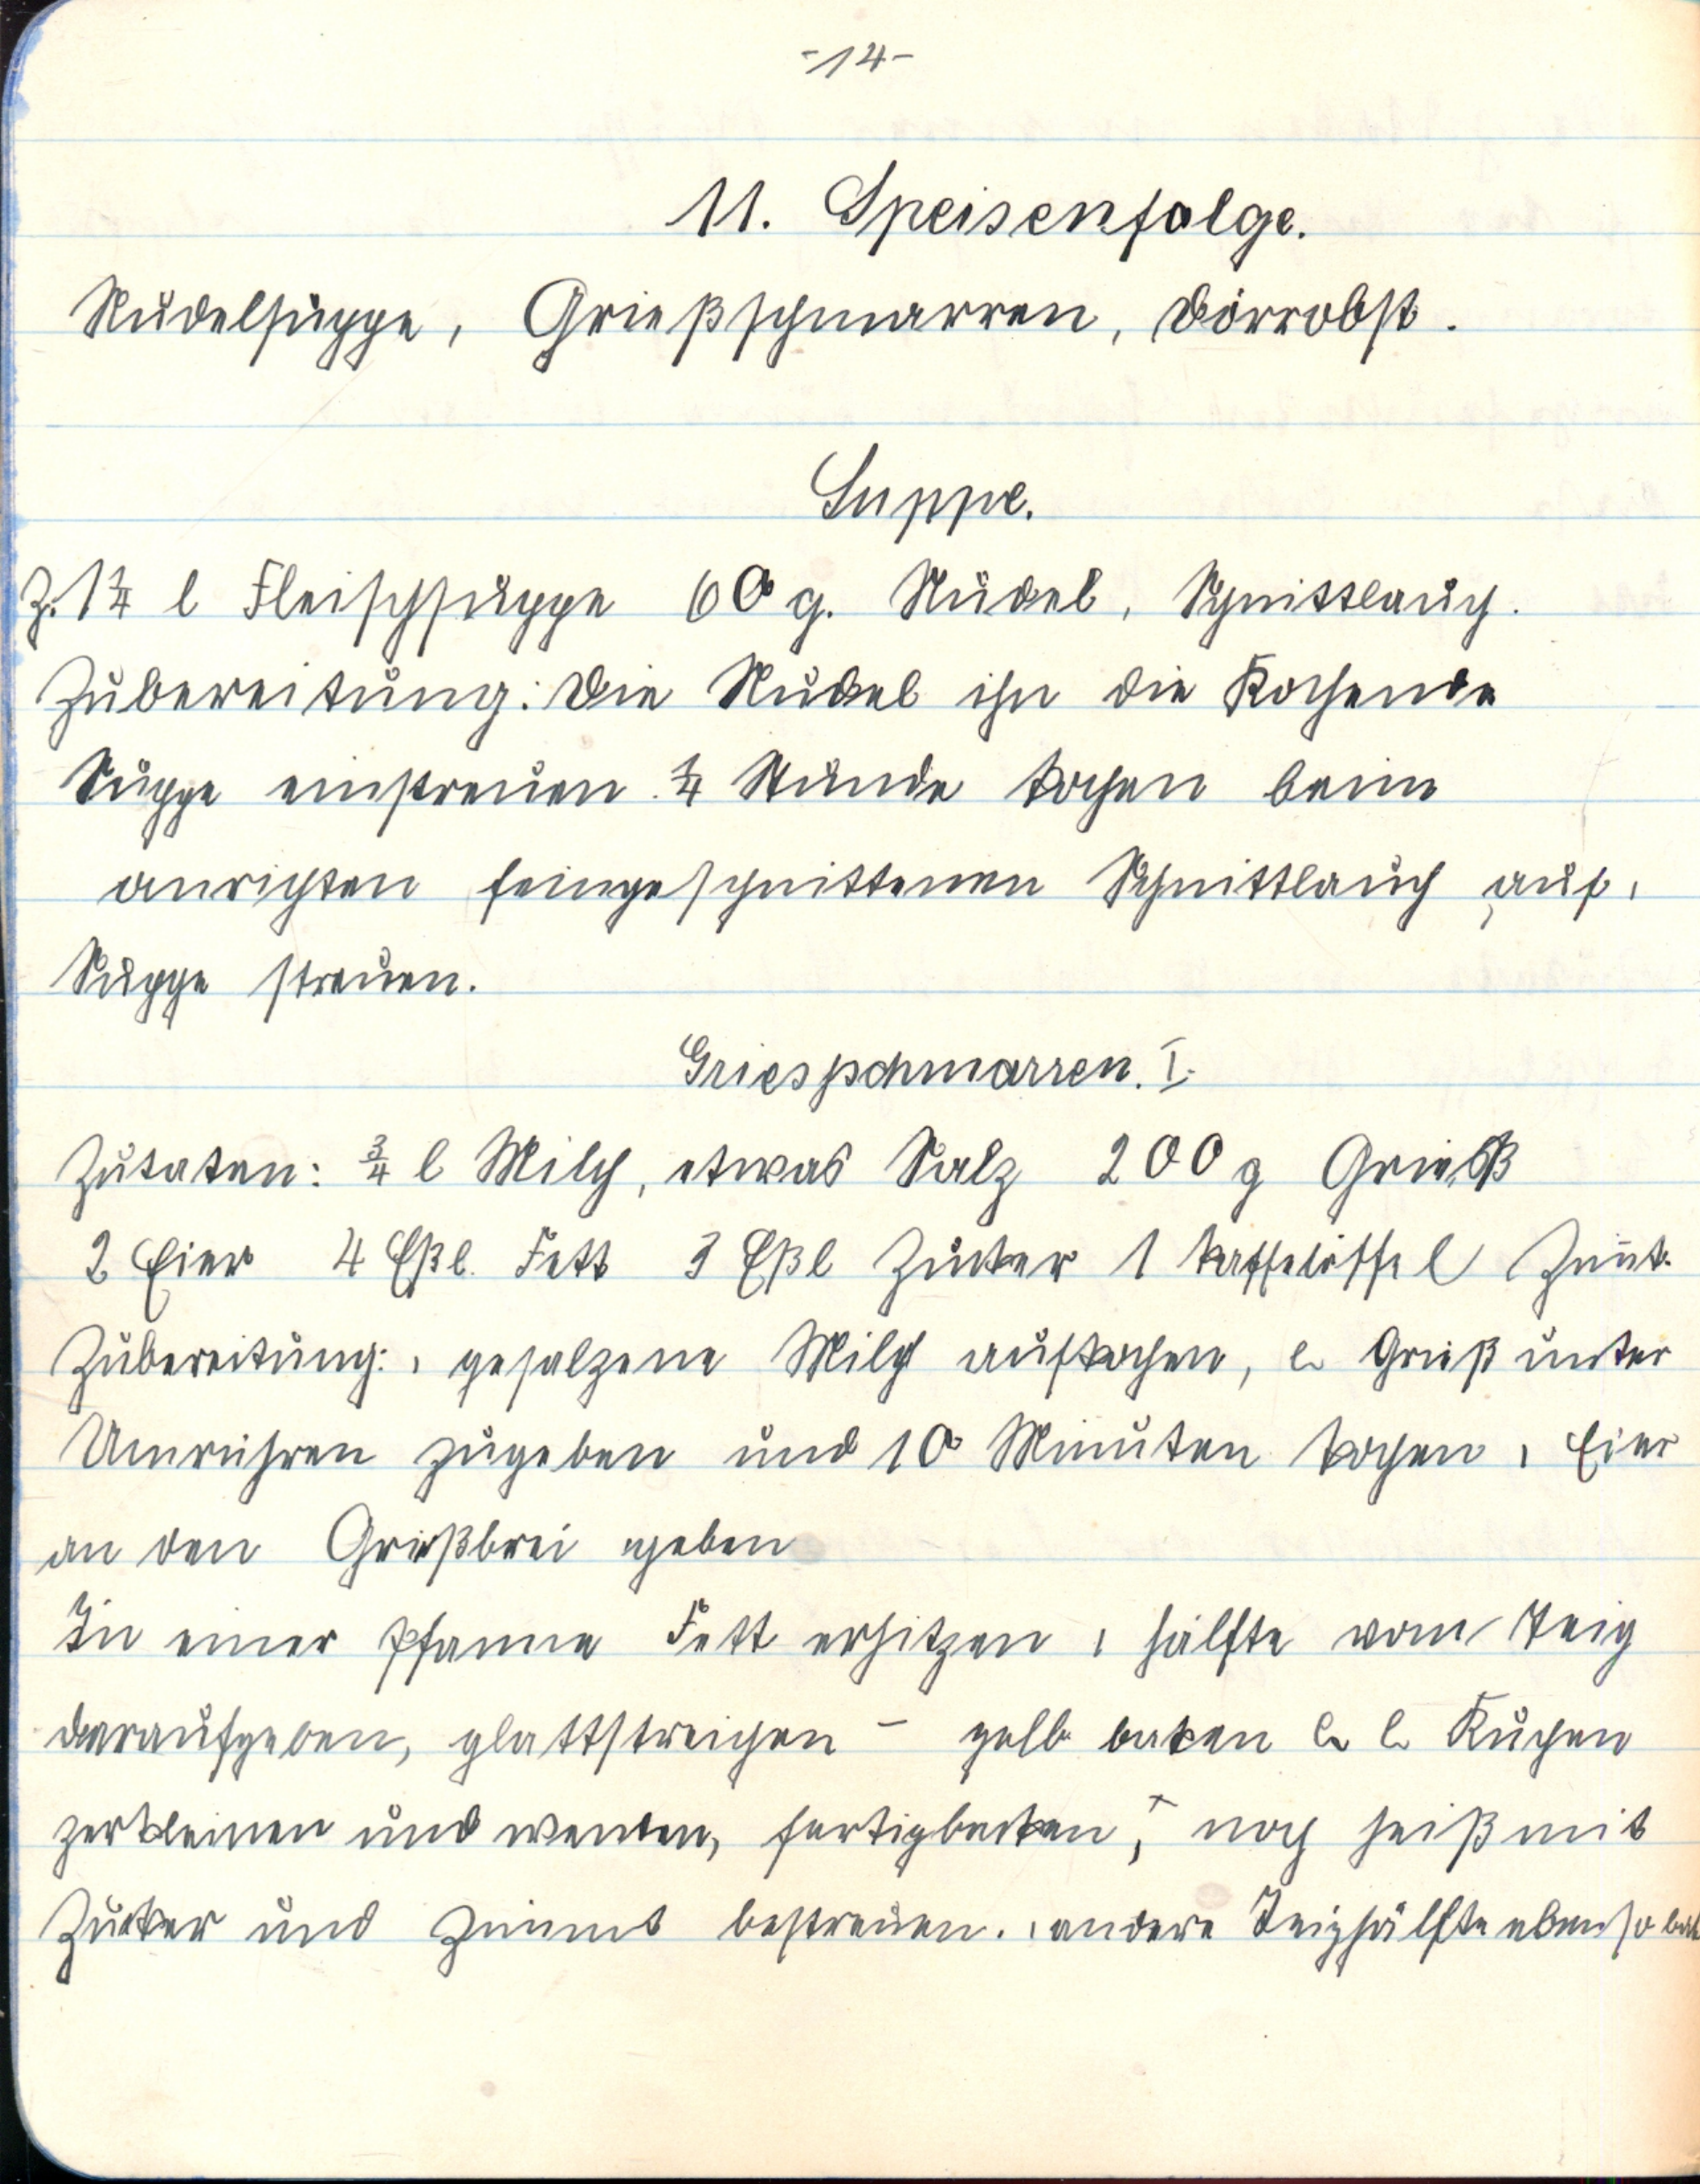 -14-
11. Speisenfolge.
Nudelsuppe, Grießschmarren, Dörrobst.
Suppe.
Z. 1 1/4 l Fleischsuppe 60 g. Nudel, Schnittlauch.
Zubereitung: Die Nudel ihn die Kochende
Suppe einstreuen 1/4 Stunde kochen beim
anrichten feingeschnittenen Schnittlauch auf,
Suppe streuen.
Griesschmarren. I.
Zutaten: 3/4 l Milch, etwas Salz 200 g Grieß
2 Eier 4 Eßl. Fett 3 Eßl Zucker 1 Kaffelöffel Zimt.
Zubereitung: gesalzene Milch aufkochen, Grieß unter
Umrühren zugeben und 10 Minuten kochen, Eier
an den Grießbrei geben
In einer Pfanne Fett erhitzen, hälfte vom Teig
daraufgeben, glattstreichen - gelb baken Kuchen
zerkleinen und wenden, fertigbacken, noch heiß mit
Zucker und Zimmt bestreuen. andere Teighälfte ebenso